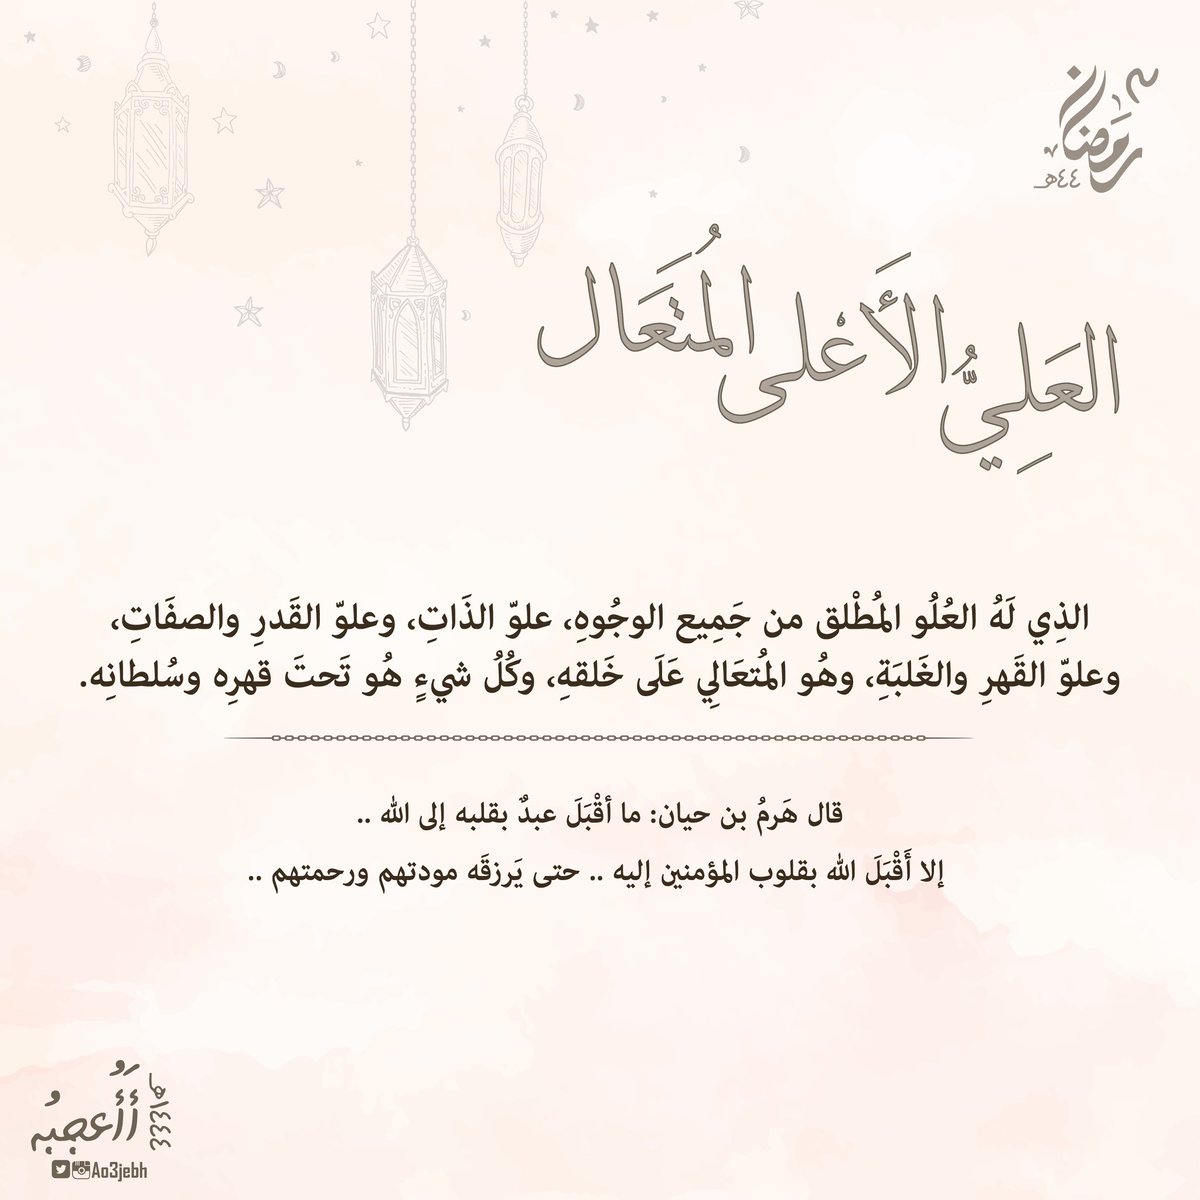 رمضان
٤٤هـ
العَلِيُّ الأَعْلى المُتَعَال
الذِي لَهُ العُلُو المُطْلق من جَمِيع الوجُوهِ، علوّ الذَاتِ، وعلوّ القَدرِ والصفَاتِ،
وعلوّ القَهرِ والغَلبَةِ، وهُو المُتعَالِي عَلَى خَلقهِ، وكُلُ شيءٍ هُو تَحتَ قهرِه وسُلطانِه.
قال هَرمُ بن حيان: ما أقْبَلَ عبدٌ بقلبه إلى الله ..
إلا أَقْبَلَ الله بقلوب المؤمنين إليه .. حتى يَرزقَه مودتهم ورحمتهم ..
١٤٤٤هـ
Ao3jebh